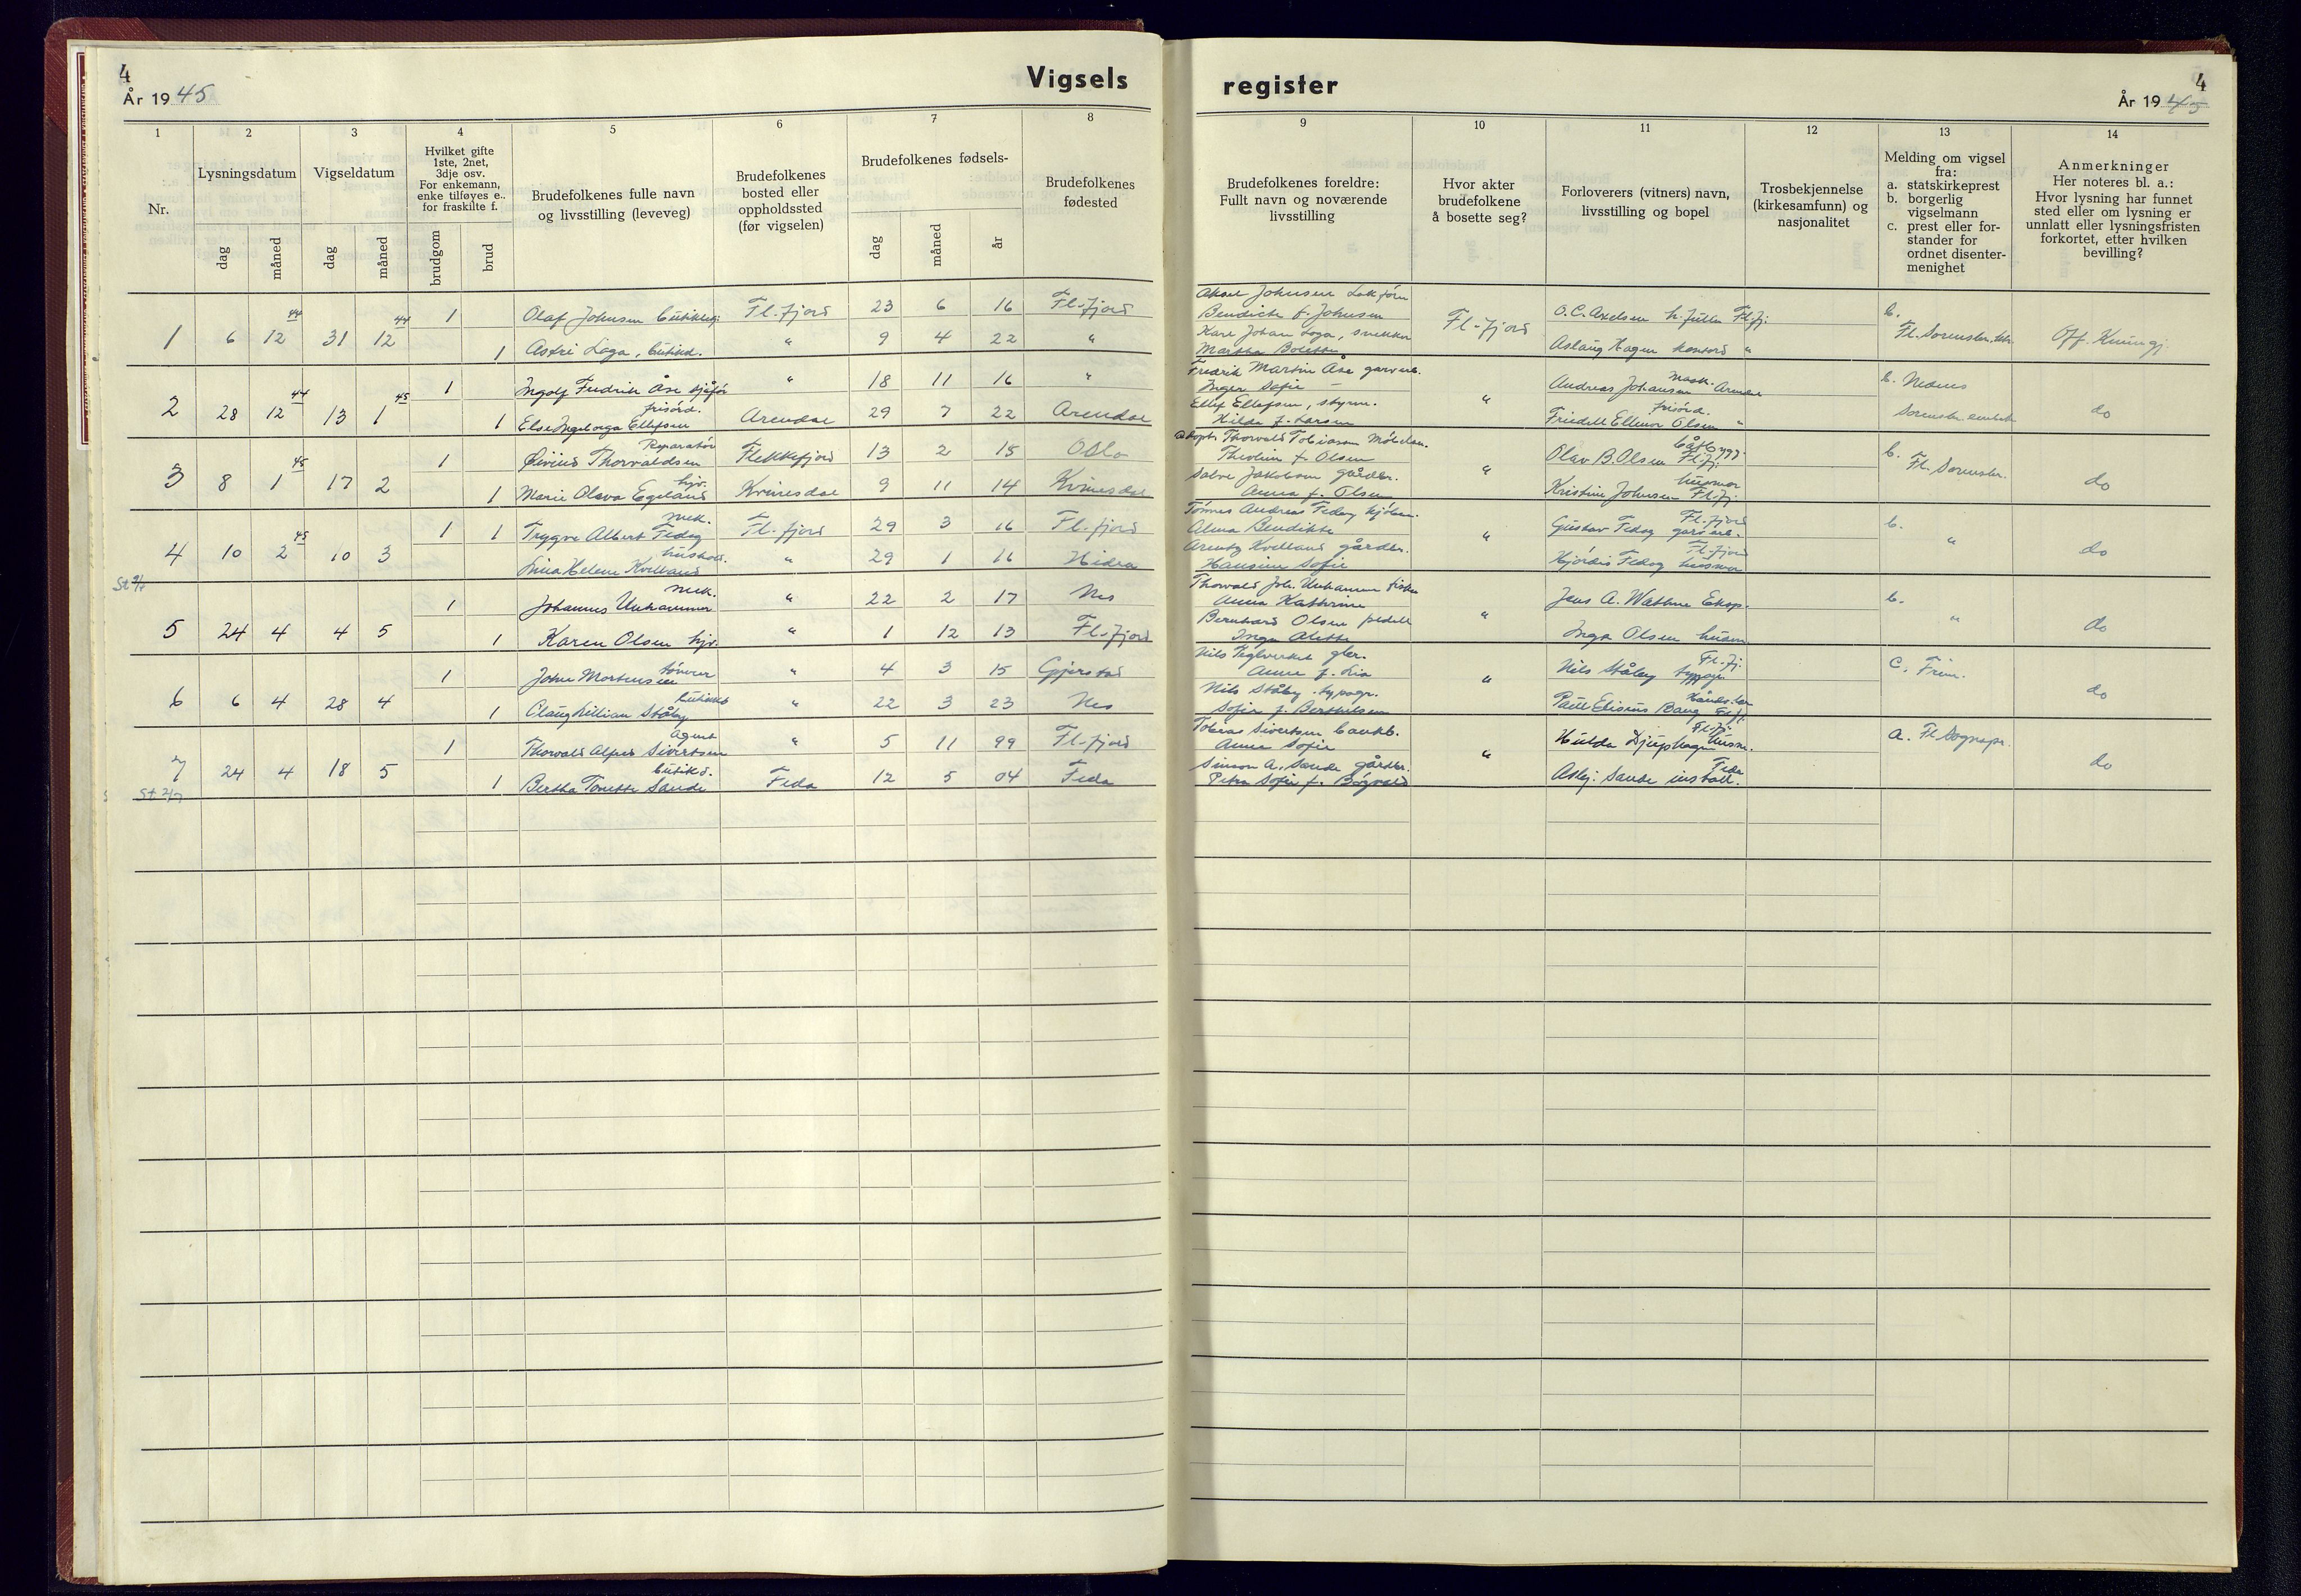 4
År 1945
Vigsels
register
4
År 1945
1 2 3 4 5 6 7 8
Nr.
Lysningsdatum
dag
måned
Vigseldatum
dag
måned
Hvilket gifte
1ste, 2net,
3dje osv.
For enkemann,
enke tilføyes e.,
for fraskilte f.
brudgom
brud
Brudefolkenes fulle navn
og livsstilling (leveveg)
Brudefolkenes
bosted eller
oppholdssted
(før vigselen)
Brudefolkenes fødsels-
dag
måned
år
Brudefolkenes
fødested
9 10 11 12 13 14
Brudefolkenes foreldre:
Fullt navn og noværende
livsstilling
Hvor akter
brudefolkene
å bosette seg?
Forloverers (vitners) navn,
livsstilling og bopel
Trosbekjennelse
(kirkesamfunn) og
nasjonalitet
Melding om vigsel
fra:
a. statskirkeprest
b. borgerlig
vigselmann
c. prest eller for-
stander for
ordnet disenter-
menighet
Anmerkninger
Her noteres bl. a.:
Hvor lysning har funnet
sted eller om lysning er
unnlatt eller lysningsfristen
forkortet, etter hvilken
bevilling?
44 44
1 Olaf Johnsen Fl.fjord 23 6 16 Fl.fjord
1 6 12 31 12
1 Astri Loga, butikd. " 9 4 22 "
44 45
1 Ingolf Fredrik Åse sjåfør " 18 11 16 "
2 28 12 13 1
frisørd.
1 Else Ingeborga Ellefsen Arendal 29 7 22 Arendal
45
Reparatør
1 Øivind Thorvaldsen Flekkefjord 13 2 15 Oslo
3 8 1 17 2
hjv.
1 Marie Olava Egeland Kvinesdal 9 11 14 Kvinesdal
45
mek.
1 1 Trygve Albert Fedog Fl.fjord 29 3 16 Fl.fjord
4 10 2 10 3
hushold.
Helene Kvelland " 29 1 16 Hidra
mek.
1 Johannes Unhammer " 22 2 17 Nes
5 24 4 4 5
1 Karen Olsen hjv. " 1 12 13 Fl.fjord
tømrer
1 John Mortensen " 4 3 15 Gjerstad
6 6 4 28 4
1 Claug Lillian Ståby " 22 3 23 Nes
Agent
1 Thorvald Alfred Sivertsen " 5 11 99 Fl.fjord
7 24 4 18 5
butikd.
1 Bertha Tonette Sande Feda 12 5 04 Feda
St 2/7
Johnsen
Bendicte f. Johnsen
Karl Johan Loga, snekker
Martha Bolette
Fl.fjord
O. C. Axelsen Fl.fj.
Aslaug Hagen kontord "
b.
Fl. Sorenskr.
Off. Kunngj.
Fredrik Martin Åse garverarb.
Inger Sofie —
Ellef Ellefsen, styrm.
Hilda f. Larsen
"
Andreas Johansen Mask. Arendal
frisørd.
Friedell Ellenor Olsen "
b. Nedenes
do
Adopt. Thorvald Tobiassen
Theoline f. Olsen
Salve Jakobsen gårdbr.
Anna f. Olsen
"
båtbygg.
Olav B. Olsen Fl.fj.
husmor
Kristine Johnsen Fl.fj.
b. Fl. Sorenskr.
do
Tønnes Andreas Fedog
Alma Bendikte
Arentz Kvelland gårdbr.
Hansine Sofie
"
Fl.fjord
Gustav Fedog garverarb.
Fl.fjord
Hjørdis Fedog husmor
b.
"
do
Thorvald Joh. Unhammer fisker
Anna Kathrine
Bernhard Olsen pedell
Inga Alette
"
Jens A. Wathne Eksp.
Inga Olsen husm.
b.
"
do
Nils
Anne f. Lia
Nils Ståby typogr.
Sofie f. Berthelsen
"
Fl.fj.
Nils Ståby typogr.
Paul Elisius Bang Fl.fj.
C. Frim.
do
Tobias Sivertsen bankb.
Anna Sofie
Simon A. Sande gårdbr.
Petra Sofie f. Bøgvald
"
Fl.fj.
Hulda Djuphagen husm.
Feda
Asbj. Sande install.
a. Fl. Sognepr.
do